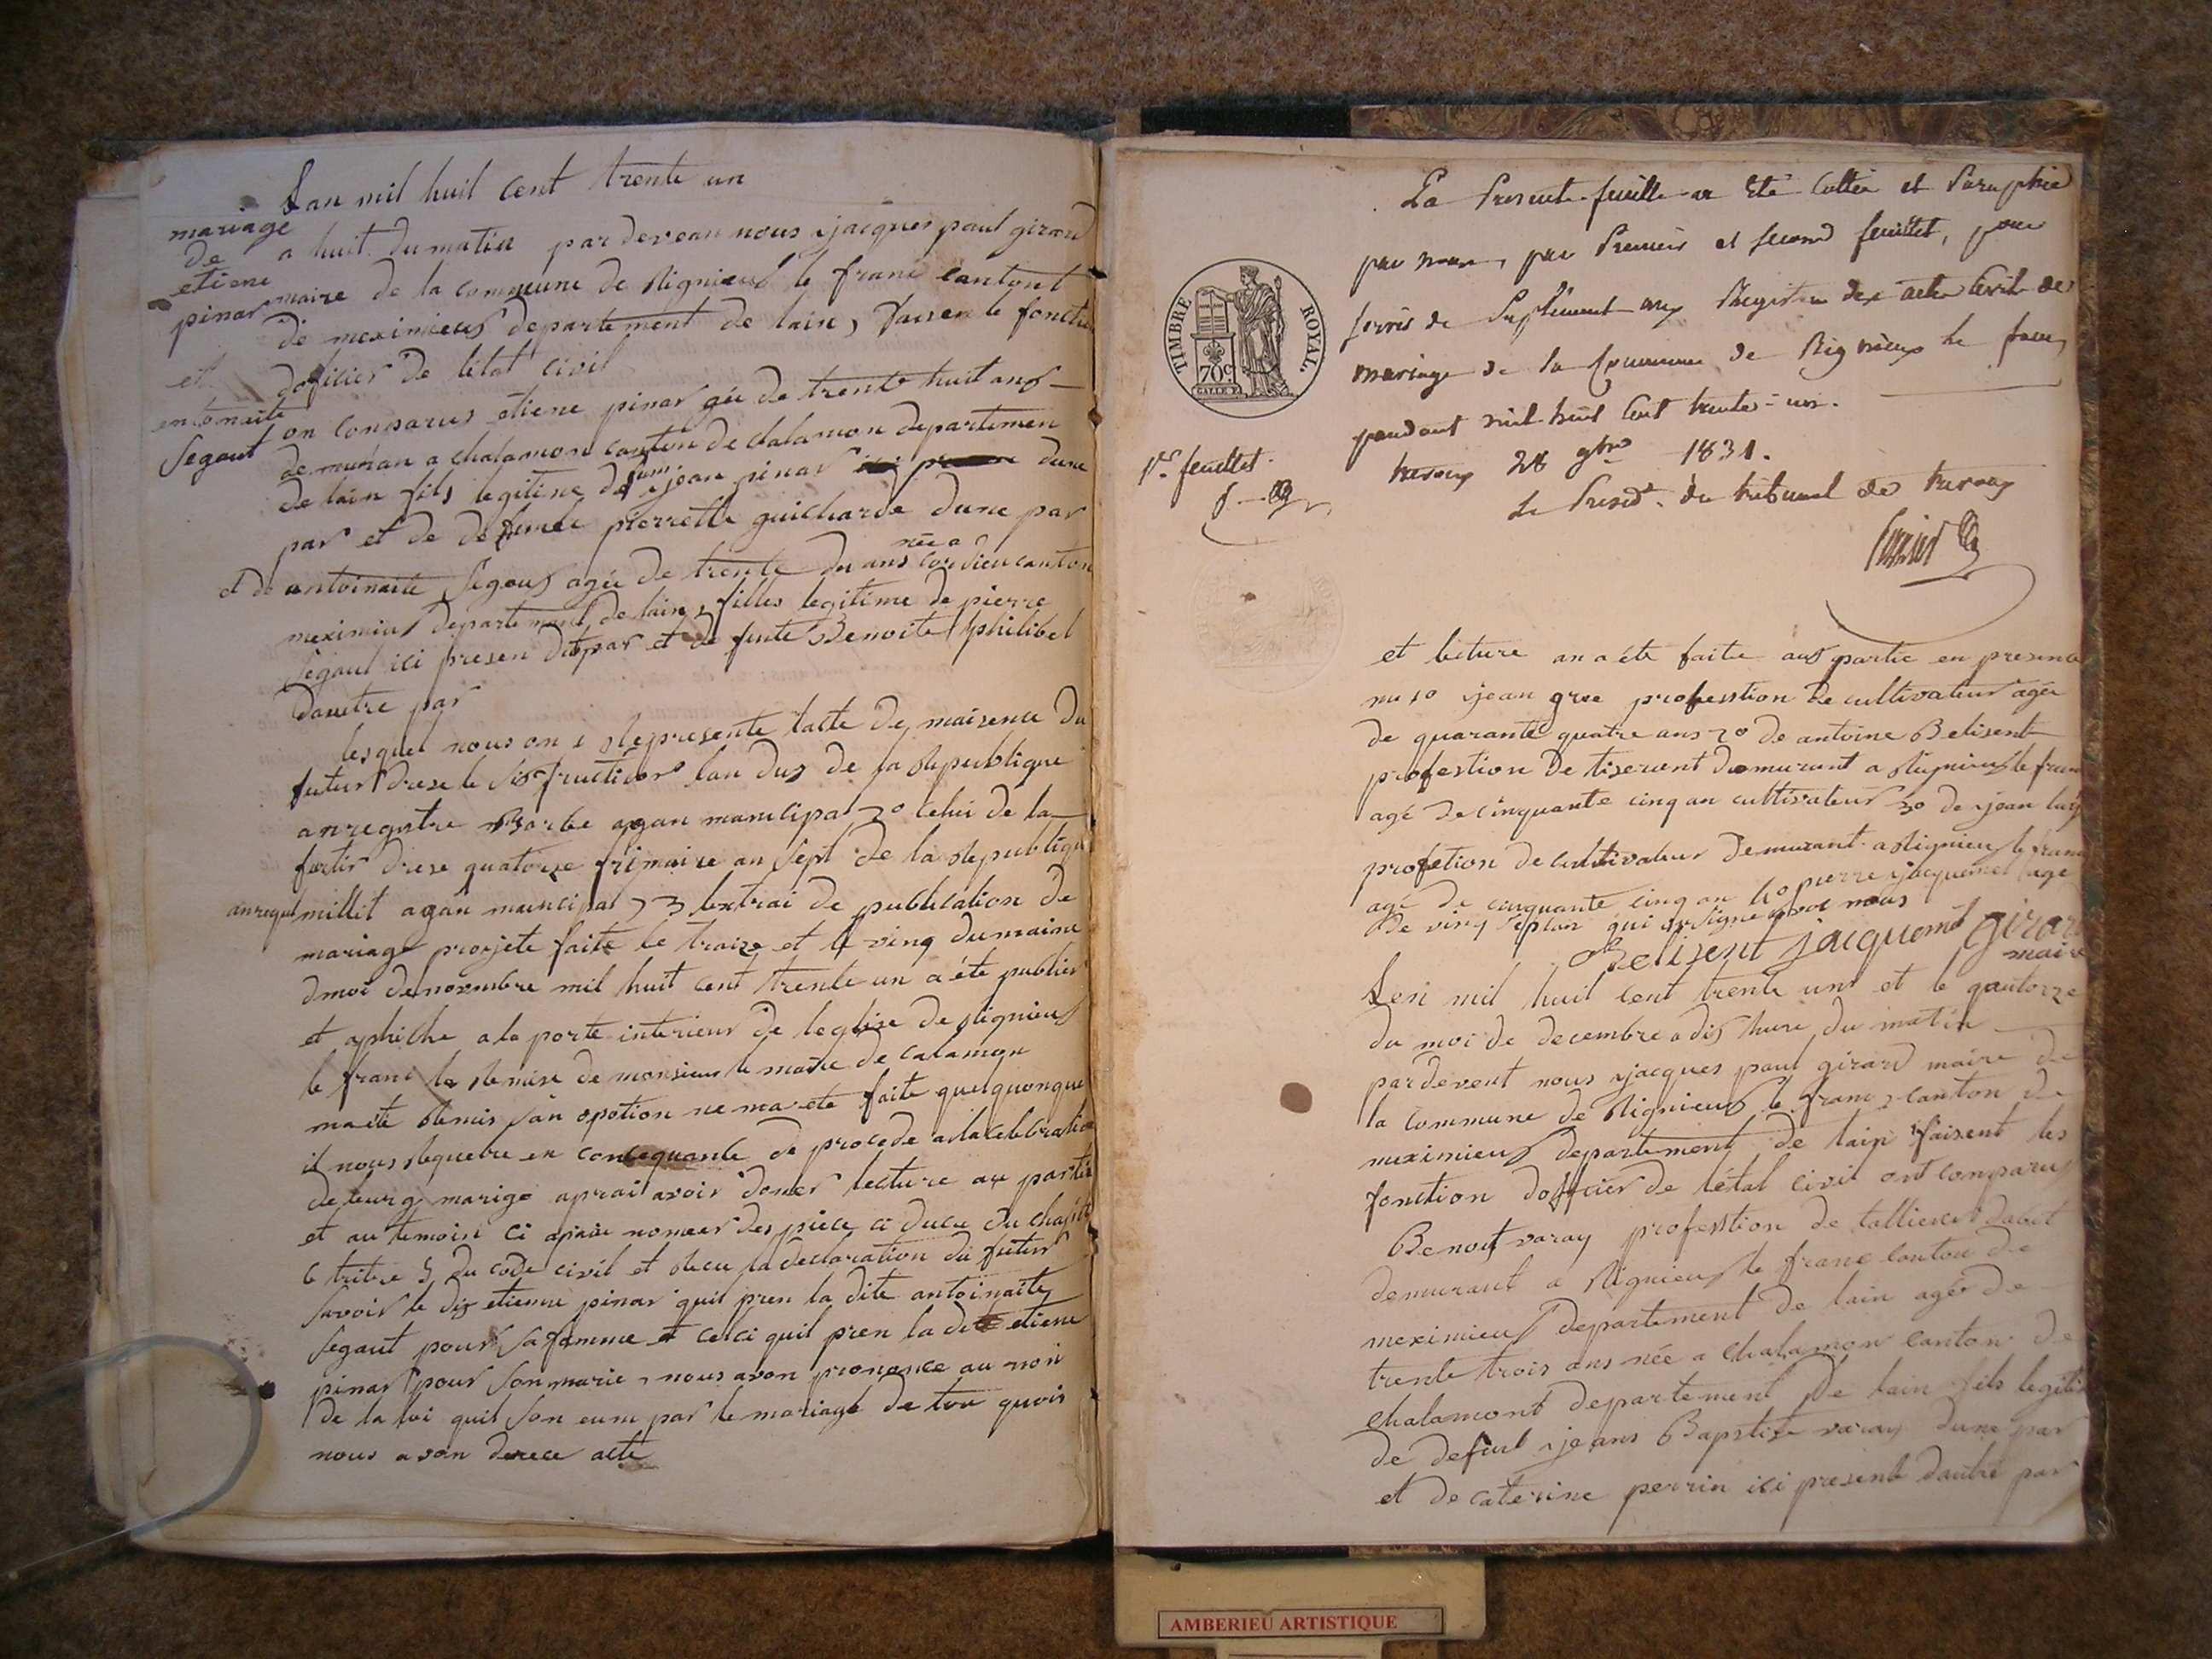 Lan mil huil cent trente un
mariage
de
etiene
pinar
et
entonaite
Segaut
a huit du matin par deveau nous jacques paul girard
maire de la commune de Rignieux le franc cantont
de meximieux departement de lain, faisen le fonctio
doficier de letat civil
on comparus etiene pinar gée de trente huit ans
demuran a chalamon canton de chalamon departemen
de lain fils legitime defunt jean pinar dune
par et de defunte pierrette guicharde dune par
et de antoinaite Segaus agée de trente du ans née a Cordieu canton
meximius departement de lain, filles legitime de pierre
Segaut ici presen dotpar et de funte Benoite philibet
dautre par
lesquel nous on 1 Represente lacte de naisence du
futur drese le dis fructidor lan dus de la Republique
anregistre Barbe agan manicipal 2º celui de la
futir drese quatorze frimaire an sept de la Republiqu
anregistre millet agan municipal 3 lextrai de publication de
mariage projete faite le traize et le ving dumaime
dmoi denovembre mil huit cent trente un a éte publier
et aphiche a la porte interieur de leglise de Rignieux
le franc la Remise de monsieur le maire de calamon
maite Remis san opotion ne ma ete faite quelquonque
il nous Requere en consequante de procede a la celebration
de leurg marige aprai avoir doner lecture au partie
et au temoin ci apraie nomeer des piece ci ducu du chapitr
6 tritre 5 du code civil et Recu la declaration du futur
savoir le dis etienne pinar quil pren la dite antoinaite
Segaut pour sa femme et celci quil pren la dite etiene
pinar pour son marie, nous avon prononce au non
de la loi quil son eunu par le mariage de tou quois
nous avon derece acte
La Presente feuille a Eté Cottée et Paraphée
par nous, par Premier et second feuillet, pour
servir de Suplément aux Registre des actes Civils de
mariage de la Commune de Rignieux le franc,
pendant mil huit Cent trente-un.
trevoux 28 9bre 1831.
Le Presidt. du tribunal de trevoux
TIMBRE ROYAL.
70c.
1er. feuillet.
et lecture an a éte faite aus partie en presence
mu 1º jean gree professtion de cultivateur agée
de quarante quatre ans 2º de antoine Belisent
profestion de tiserent demurant a Rignieux le franc
agé de cinquante cinq an cultivateur 3º de jean
profetion de cultivateur demurant a Rignieu le franc
agé de cinquante cinq an 4º pierre jacquemet age
de ving septan qui on signe avec nous
Belisent jacquemet girard
maire
Lan mil huil cent trente un et le quatorze
du moi de decembre a dis hure du matin
pardevent nous jacques paul girard maire de
la commune de Rignieux le franc, canton de
meximieux departement de lain faisent les
fonction dofficier de létal civil ont comparus
Benoit varay professtion de tallieur dabit
demurant a Rignieux le franc canton de
meximieux departement de lain agée de
trente trois ans née a chalamon canton de
chalamont departement de lain fils legiti
de defunt jeans Bapstiste varay dune par
et de caterine perrin ici presente dautre par
AMBERIEU ARTISTIQUE